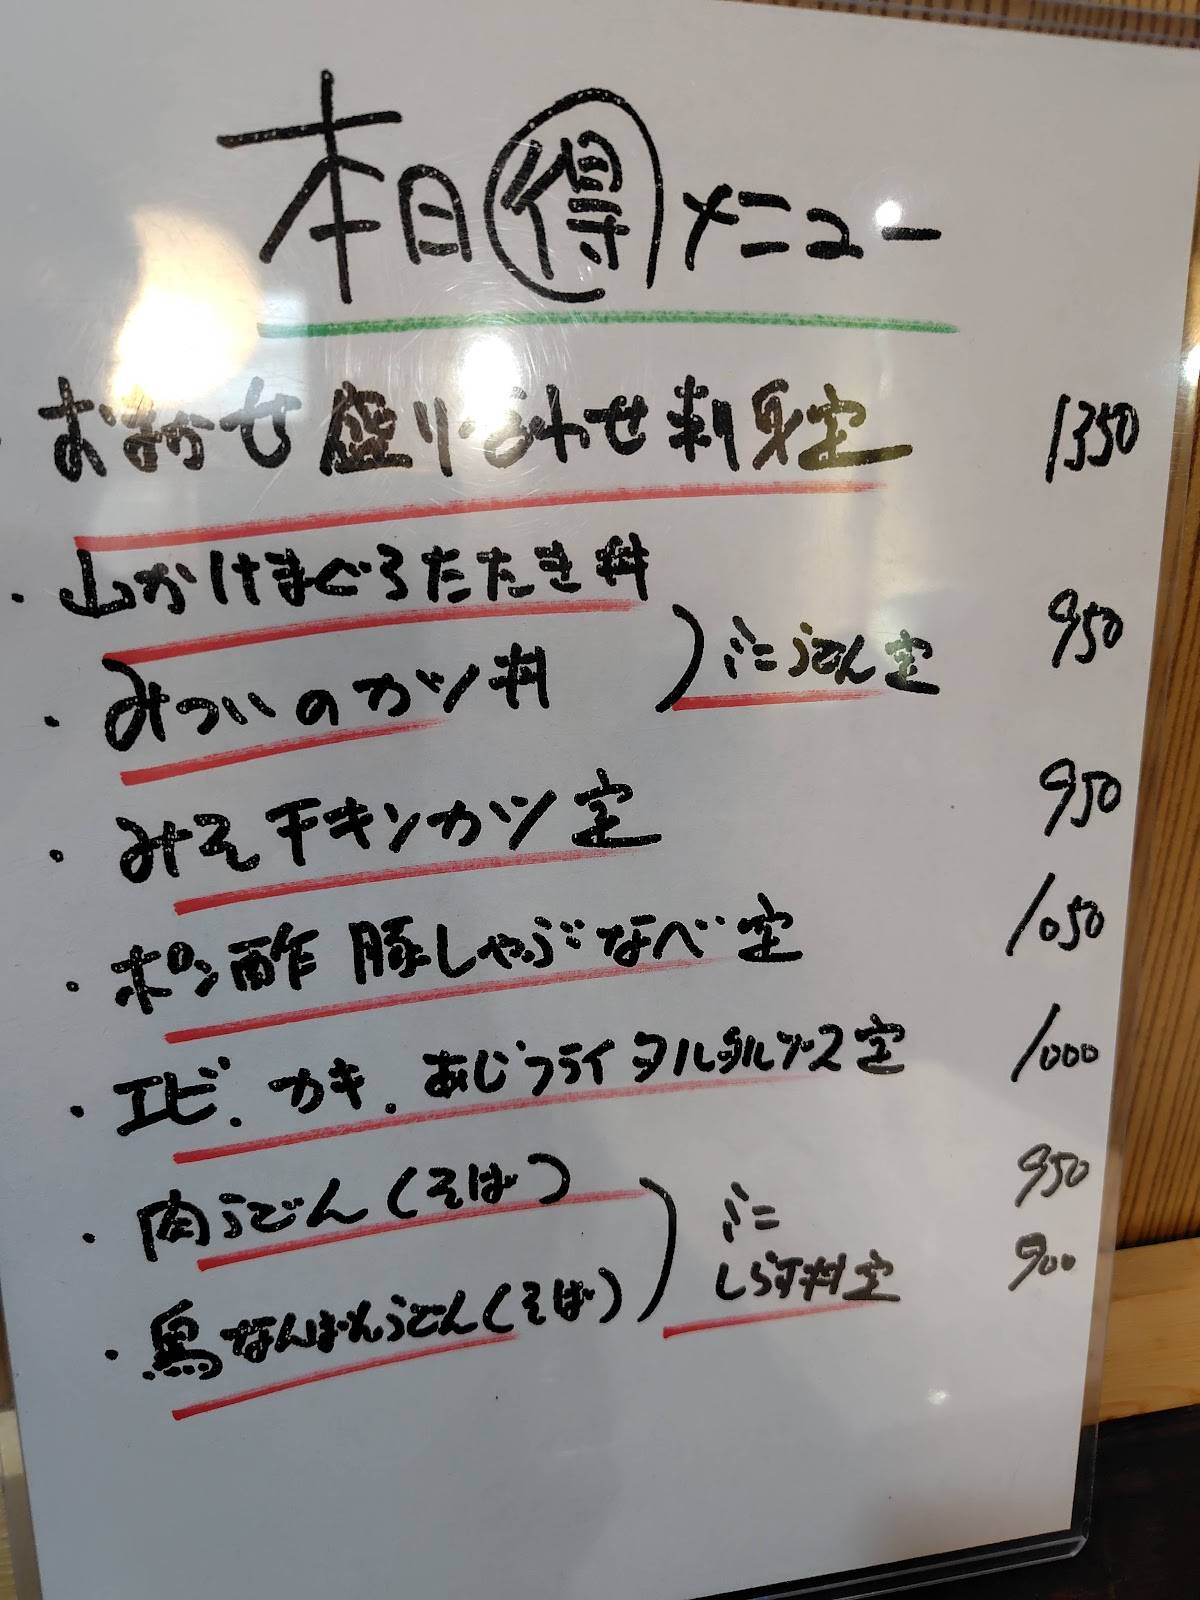 本日㊝得メニュー
・おまかせ盛り合わせ刺身定 1350
・山かけまぐろたたき丼
・みついのカツ丼 ) ミニうどん定 950
・みそチキンカツ定 950
・ポン酢豚しゃぶなべ定 1050
・エビ.カキ.あじフライタルタルソース定 1000
・肉うどん(そば) 950
・鳥なんばんうどん(そば) ) ミニしらす丼定 900